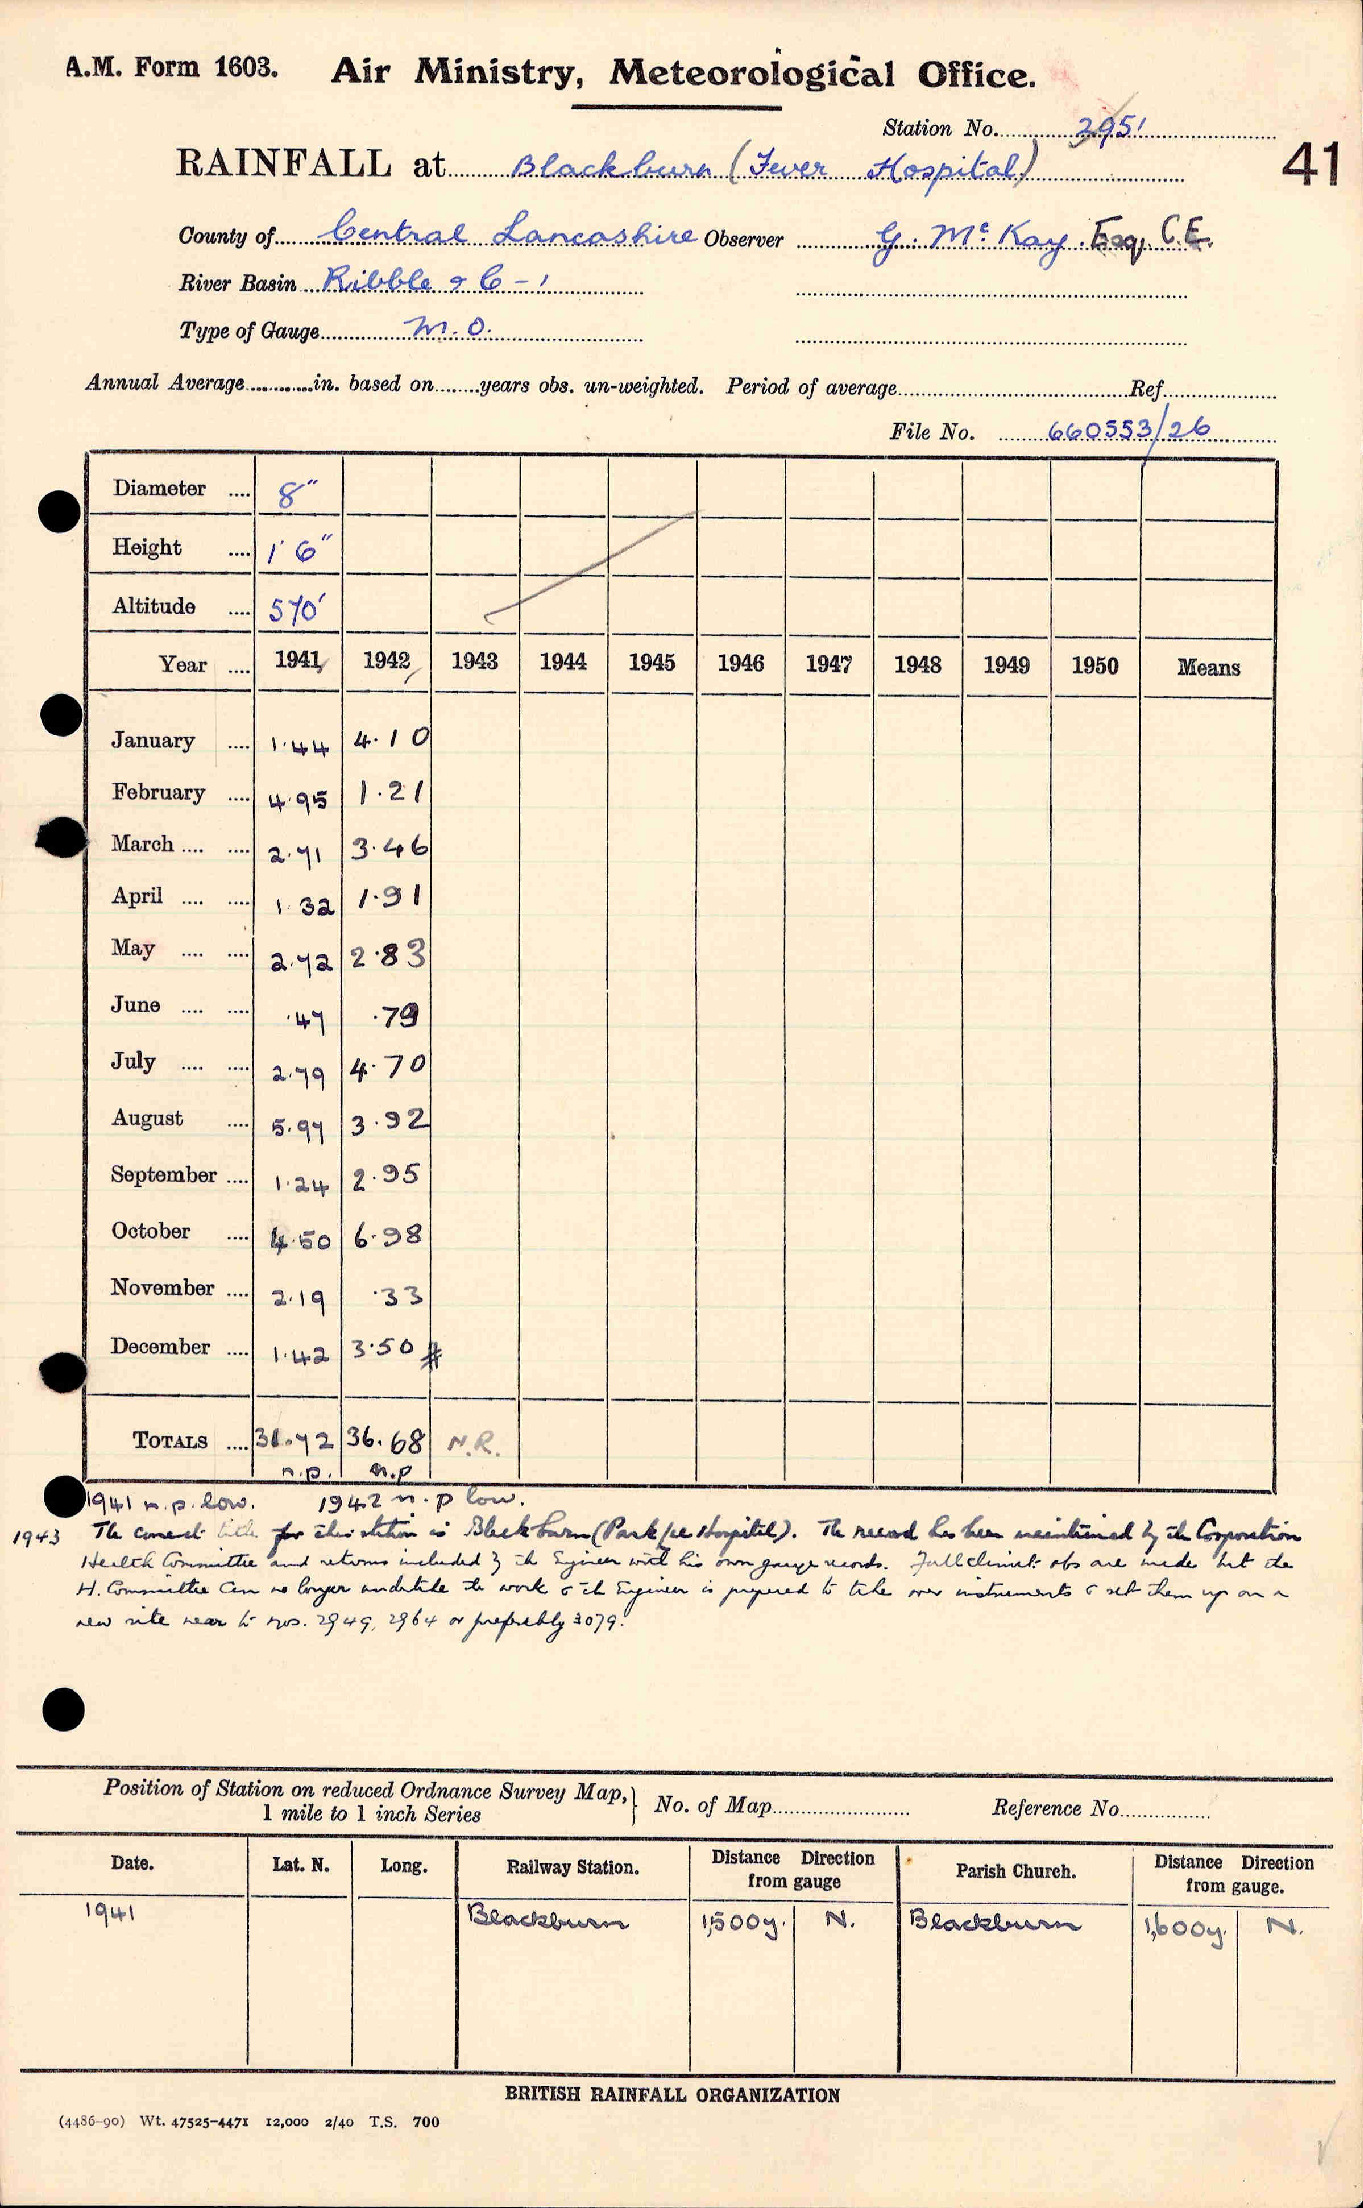 A.M. Form 1603. Air Ministry, Meteorological Office.
Station No. 2951
RAINFALL at Blackburn (Fever Hospital)
41
County of Central Lancashire Observer G. McKay. Esq, C.E.
River Basin Ribble & C - 1
Type of Gauge M.O.
Annual Average in. based on years obs. un-weighted. Period of average Ref.
File No. 660553/26
Diameter 8"
Height 1' 6"
Altitude 570'
Year 1941 1942 1943 1944 1945 1946 1947 1948 1949 1950 Means
January 1.44 4.10
February 4.95 1.21
March 2.71 3.46
April 1.32 1.91
May 2.72 2.83
June .47 .79
July 2.79 4.70
August 5.97 3.92
September 1.24 2.95
October 4.50 6.98
November 2.19 .33
December 1.42 3.50 #
TOTALS 31.72 36.68 N.R.
n.p. n.p
1941 n.p. low. 1942 n.p low.
1943 The correct title for this station is Blackburn (Park Lee Hospital). The record has been maintained by the Corporation
Health Committee and returns included by the Engineer with his own gauge records. Full climat. obs are made but the
H. Committee can no longer undertake the work & the Engineer is prepared to take over instruments & set them up on a
new site near to nos. 2949, 2964 or preferably 3079.
Position of Station on reduced Ordnance Survey Map, 1 mile to 1 inch Series } No. of Map Reference No.
Date. Lat. N. Long. Railway Station. Distance Direction from gauge Parish Church. Distance Direction from gauge.
1941 Blackburn 1,500y. N. Blackburn 1,600y. N.
BRITISH RAINFALL ORGANIZATION
(4486-90) Wt. 47525-4471 12,000 2/40 T.S. 700